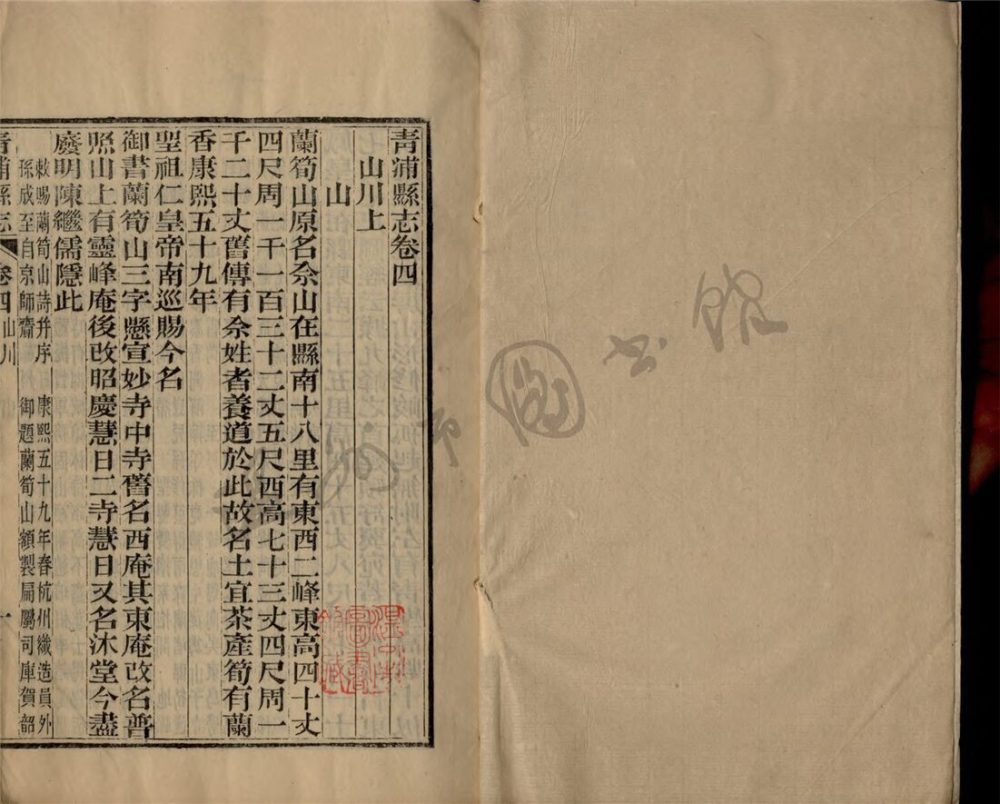 青浦縣志卷四
山川上
山
蘭筍山原名佘山在縣南十八里有東西二峰東高四十丈
四尺周一千一百三十二丈五尺西高七十三丈四尺周一
千二十丈舊傳有佘姓者養道於此故名土宜茶產筍有蘭
香康熙五十九年
聖祖仁皇帝南巡賜今名
御書蘭筍山三字懸宣妙寺中寺舊名西庵其東庵改名普
照山上有靈峰庵後改昭慶慧日二寺慧日又名沐堂今盡
廢明陳繼儒隱此
敕賜蘭筍山詩并序 康熙五十九年春杭州織造員外
孫成至自京師齋 御題蘭筍山額製扁屬司庫賀韶
青浦縣志 卷四 山川 一
書